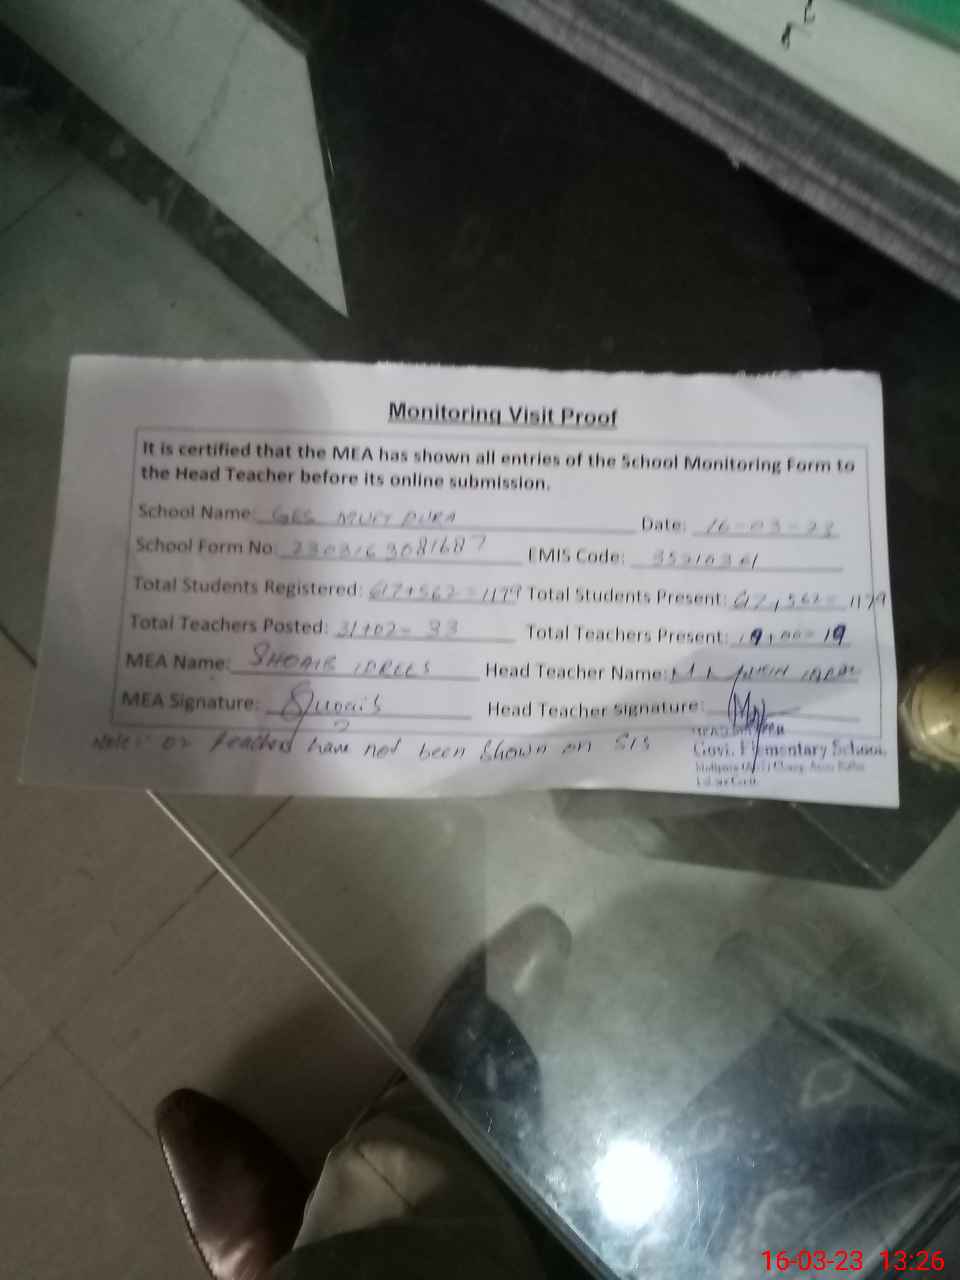 Monitoring Visit Proof
It is certified that the MEA has shown all entries of the School Monitoring Form to
the Head Teacher before its online submission.
School Name: GES Date: 16-03-23
School Form No: EMIS Code:
Total Students Registered: 617+562=1179 Total Students Present: 617+562= 1179
Total Teachers Posted: 31+02= 33 Total Teachers Present: 19+00= 19
MEA Name: SHOAIB IDREES Head Teacher Name:
MEA Signature: Shoaib Head Teacher Signature:
Note: 02 teached have not been shown on SIS
Govt. Elementary School,
16-03-23 13:26